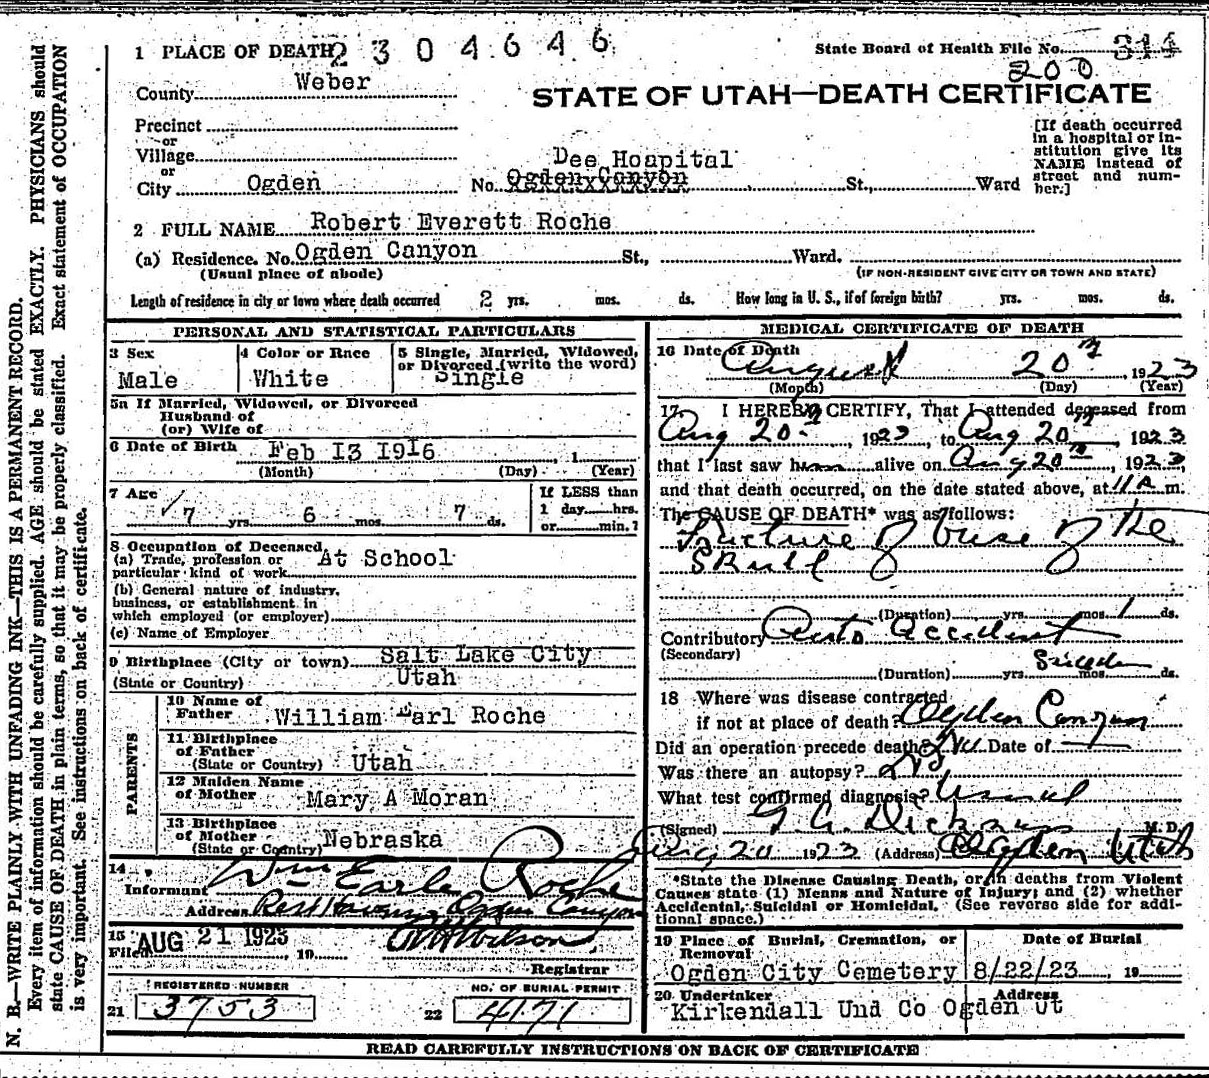 1 PLACE OF DEATH 2 3 0 4 6 4 6
State Board of Health File No. 314
200
County Weber
STATE OF UTAH—DEATH CERTIFICATE
Precinct
or
Village
or
City Ogden No. Dee Hospital St., Ward
Ogden Canyon
[If death occurred
in a hospital or in-
stitution give its
NAME instead of
street and num-
ber.]
2 FULL NAME Robert Everett Roche
(a) Residence. No. Ogden Canyon St., Ward.
(Usual place of abode) (IF NON-RESIDENT GIVE CITY OR TOWN AND STATE)
Length of residence in city or town where death occurred 2 yrs. mos. ds. How long in U. S., if of foreign birth? yrs. mos. ds.
PERSONAL AND STATISTICAL PARTICULARS
3 Sex
Male
4 Color or Race
White
5 Single, Married, Widowed,
or Divorced (write the word)
Single
5a If Married, Widowed, or Divorced
Husband of
(or) Wife of
6 Date of Birth Feb 13 1916 , 1
(Month) (Day) (Year)
7 Age
7 yrs. 6 mos. 7 ds.
If LESS than
1 day hrs.
or min.?
8 Occupation of Deceased
(a) Trade, profession or
particular kind of work At School
(b) General nature of industry,
business, or establishment in
which employed (or employer)
(c) Name of Employer
9 Birthplace (City or town) Salt Lake City
(State or Country) Utah
PARENTS
10 Name of
Father William Earl Roche
11 Birthplace
of Father
(State or Country) Utah
12 Maiden Name
of Mother Mary A Moran
13 Birthplace
of Mother
(State or Country) Nebraska
14
Informant Wm Earle Roche
Address Rest Haven, Ogden Canyon
15
Filed AUG 21 1923, 19 Wilson
Registrar
REGISTERED NUMBER
21 3753
NO. OF BURIAL PERMIT
22 4171
MEDICAL CERTIFICATE OF DEATH
16 Date of Death
August 20th, 1923
(Month) (Day) (Year)
17 I HEREBY CERTIFY, That I attended deceased from
Aug 20th, 1923, to Aug 20th, 1923
that I last saw him alive on Aug 20th, 1923,
and that death occurred, on the date stated above, at 11 A m.
The CAUSE OF DEATH* was as follows:
Fracture of base of the
Skull
(Duration) yrs. mos. 1 ds.
Contributory Auto Accident
(Secondary)
Sudden
(Duration) yrs. mos. ds.
18 Where was disease contracted
if not at place of death? Ogden Canyon
Did an operation precede death? No Date of
Was there an autopsy? No
What test confirmed diagnosis? Usual
(Signed) M. D.
Aug 20 1923 (Address) Ogden Utah
*State the Disease Causing Death, or, in deaths from Violent
Causes state (1) Means and Nature of Injury; and (2) whether
Accidental, Suicidal or Homicidal. (See reverse side for addi-
tional space.)
19 Place of Burial, Cremation, or
Removal
Ogden City Cemetery
Date of Burial
8/22/23, 19
20 Undertaker Address
Kirkendall Und Co Ogden Ut
READ CAREFULLY INSTRUCTIONS ON BACK OF CERTIFICATE
N. B.—WRITE PLAINLY WITH UNFADING INK—THIS IS A PERMANENT RECORD.
Every item of information should be carefully supplied. AGE should be stated EXACTLY. PHYSICIANS should
state CAUSE OF DEATH in plain terms, so that it may be properly classified. Exact statement of OCCUPATION
is very important. See instructions on back of certificate.